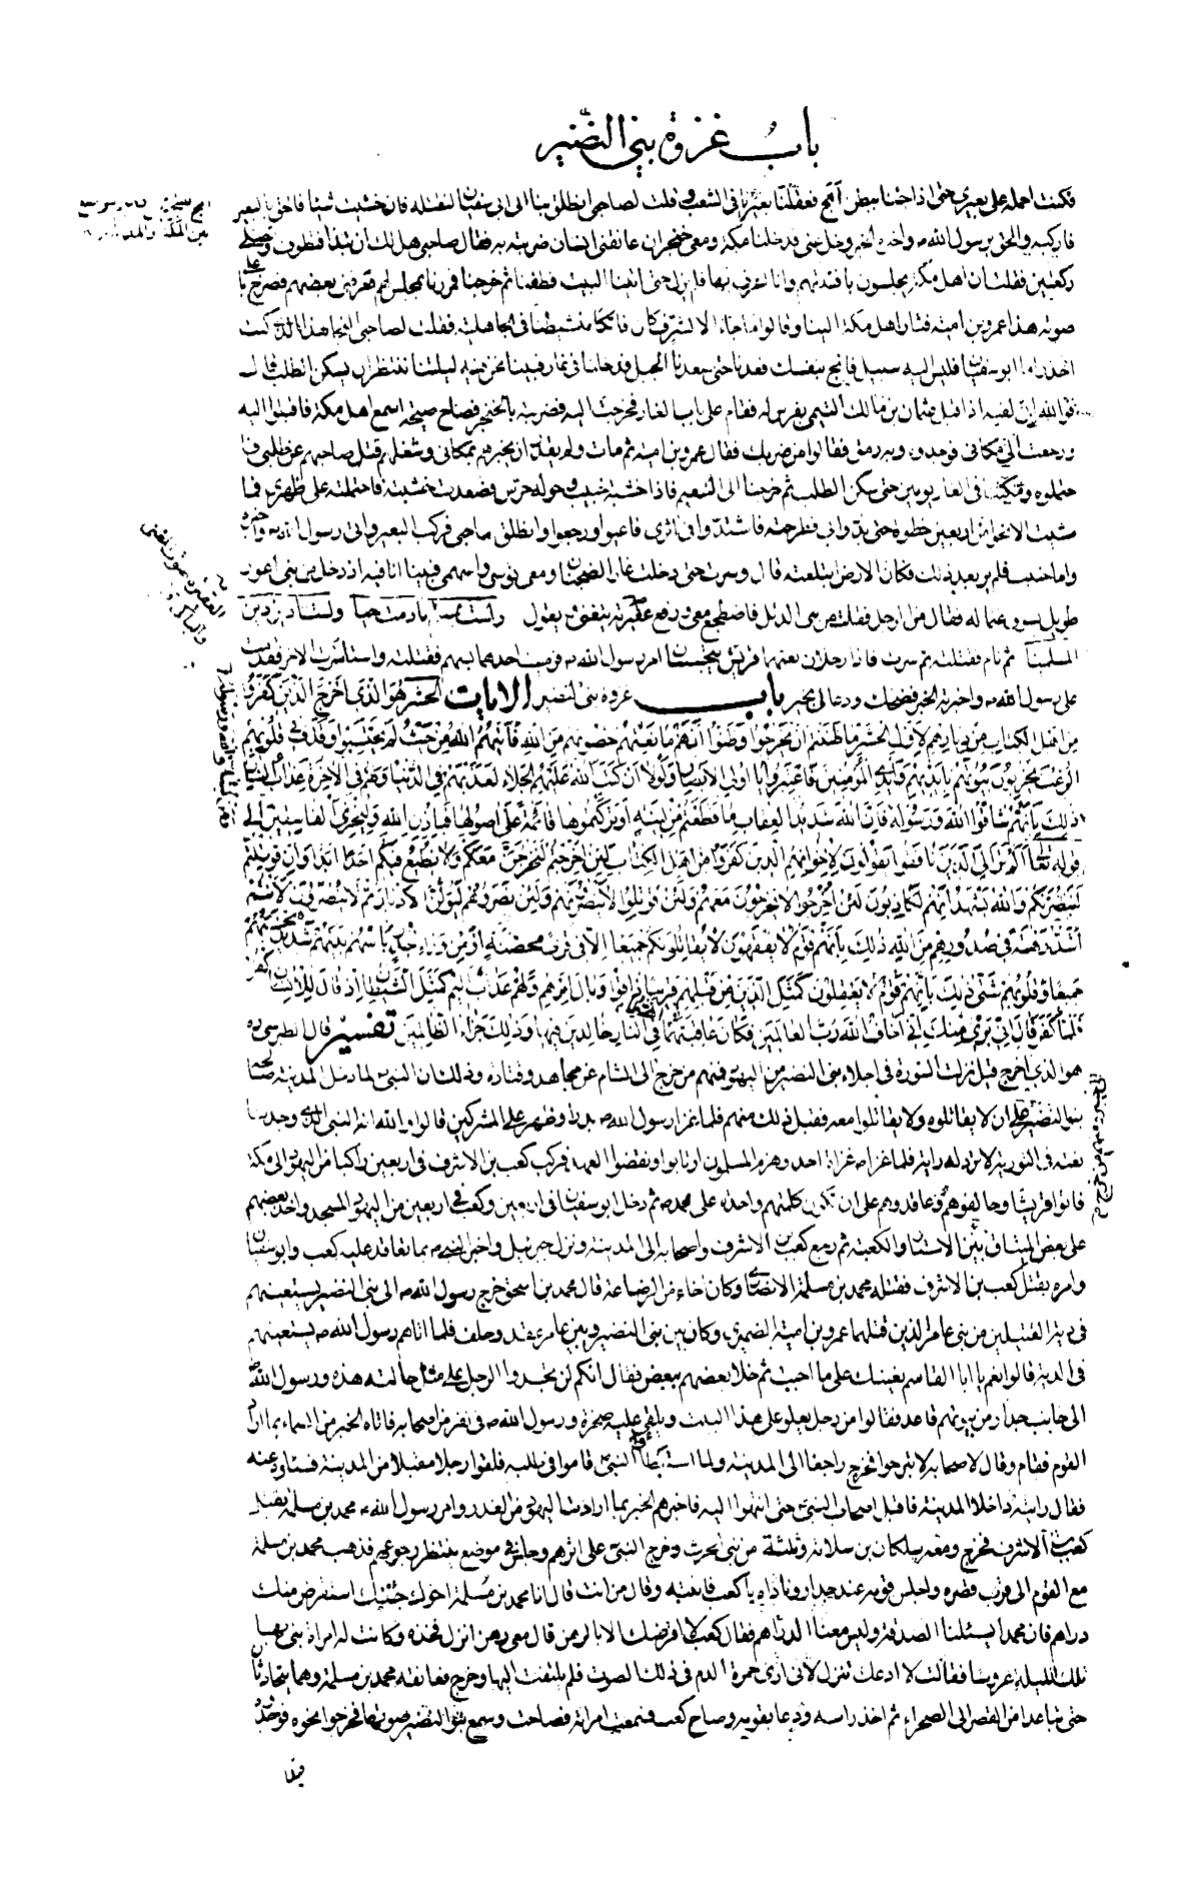 باب غزوة بني النضير
فكنت احمله على بعيري حتى اذا جئنا ببطن يأجج فعقلنا بعيرنا في الشعب وقلت لصاحبي انطلق بنا الى ابي سفيان لنقتله فان خشيت شيئا فالحق بالبعير
فاركبه والحق برسول الله ص واخبره الخبر وخل عني فدخلنا مكة ومعي خنجر ان عانقني انسان ضربته به فقال صاحبي هل لك ان نبدأ فنطوف ونصلي
ركعتين فقلت ان اهل مكة يجلسون بافنيتهم وانا اعرف بها فلم يزل حتى اتينا البيت فطفنا ثم خرجنا فمررنا بمجلس لهم فعرفني بعضهم فصرخ باعلى
صوته هذا عمرو بن امية فثار اهل مكة الينا وقالوا ما جاء الا لشر فان كان فاتكا متشيطنا في الجاهلية فقلت لصاحبي النجا هذا الذي كنت
احذر اما ابو سفيان فليس اليه سبيل فانج بنفسك فعدنا حتى صعدنا الجبل فدخلنا في غار فبتنا فيه ليلتنا ننتظر ان يسكن الطلب قال
فوالله اني لفيه اذ اقبل عثمان بن مالك التيمي بفرس له فقام على باب الغار فخرجت اليه فضربته بالخنجر فصاح صيحة اسمع اهل مكة فاقبلوا اليه
ورجعت الى مكاني فوجدوه وبه رمق فقالوا من ضربك فقال عمرو بن امية ثم مات ولم يقدر ان يخبرهم بمكاني وشغلهم قتل صاحبهم عن طلبي فا
حتملوه ومكثنا في الغار يومين حتى سكن الطلب ثم خرجنا الى التنعيم فاذا خشبة خبيب وحوله حرس فصعدت خشبته فاحتملته على ظهري فما
مشيت الا نحوا من اربعين خطوة حتى نذروا بي فطرحته فاشتدوا في اثري فاعيوا ورجعوا وانطلق صاحبي فركب البعير واتى رسول الله ص واخبره
واما خبيب فلم ير بعد ذلك فكان الارض ابتلعته قال وسرت حتى دخلت غار الضجنان ومعي قوسي واسهمي فبينا انا فيه اذ دخل من بني اعور
طويل يسوق غنما له فقال من الرجل فقلت من بني الدئل فاضطجع معي ورفع عقيرته يتغنى ويقول ولست بمسلم ما دمت حيا ولست ادين دين
المسلمينا ثم نام فقتلته ثم سرت فاذا رجلان بعثهما قريش يتجسسان امر رسول الله ص فرميت احدهما بسهم فقتلته واستأسرت الاخر فقدمت
على رسول الله ص واخبرته الخبر فضحك ودعا لي بخير باب غزوة بني النضير الايات الحشر هو الذي اخرج الذين كفروا
من اهل الكتاب من ديارهم لاول الحشر ما ظننتم ان يخرجوا وظنوا انهم مانعتهم حصونهم من الله فأتيهم الله من حيث لم يحتسبوا وقذف في قلوبهم
الرعب يخربون بيوتهم بايديهم وايدي المؤمنين فاعتبروا يا اولي الابصار ولولا ان كتب الله عليهم الجلاء لعذبهم في الدنيا ولهم في الاخرة عذاب النار
ذلك بانهم شاقوا الله ورسوله فان الله شديد العقاب ما قطعتم من لينة او تركتموها قائمة على اصولها فباذن الله وليخزي الفاسقين الى
قوله تعالى الم تر الى الذين نافقوا يقولون لاخوانهم الذين كفروا من اهل الكتاب لئن اخرجتم لنخرجن معكم ولا نطيع فيكم احدا ابدا وان قوتلتم
لننصرنكم والله يشهد انهم لكاذبون لئن اخرجوا لا يخرجون معهم ولئن قوتلوا لا ينصرونهم ولئن نصروهم ليولن الادبار ثم لا ينصرون لانتم
اشد رهبة في صدورهم من الله ذلك بانهم قوم لا يفقهون لا يقاتلونكم جميعا الا في قرى محصنة او من وراء جدر باسهم بينهم شديد تحسبهم
جميعا وقلوبهم شتى ذلك بانهم قوم لا يعقلون كمثل الذين من قبلهم قريبا ذاقوا وبال امرهم ولهم عذاب اليم كمثل الشيطان اذ قال للانسان اكفر
فلما كفر قال اني بريء منك اني اخاف الله رب العالمين فكان عاقبتهما انهما في النار خالدين فيها وذلك جزاء الظالمين تفسير قال الطبرسي ره
هو الذي اخرج قيل نزلت السورة في اجلاء بني النضير من اليهود فمنهم من خرج الى الشام عن مجاهد وقتادة وذلك ان النبي ص لما دخل المدينة صالحه
بنو النضير على ان لا يقاتلوه ولا يقاتلوا معه فقبل ذلك منهم فلما غزا رسول الله ص بدرا وظهر على المشركين قالوا والله انه النبي الذي وجدنا
نعته في التورية لا ترد له راية فلما غزا ص غزاة احد وهزم المسلمون ارتابوا ونقضوا العهد فركب كعب بن الاشرف في اربعين راكبا من اليهود الى مكة
فاتوا قريشا وحالفوهم وعاقدوهم على ان تكون كلمتهم واحدة على محمد ص ثم دخل ابو سفيان في اربعين وكعب في اربعين من اليهود المسجد واخذ بعضهم
على بعض الميثاق بين الاستار والكعبة ثم رجع كعب بن الاشرف واصحابه الى المدينة ونزل جبرئيل واخبر النبي ص بما تعاقد عليه كعب وابو سفيان
وامره بقتل كعب بن الاشرف فقتله محمد بن مسلمة الانصاري وكان اخاه من الرضاعة قال محمد بن اسحق خرج رسول الله ص الى بني النضير يستعينهم
في دية القتيلين من بني عامر الذين قتلهما عمرو بن امية الضمري وكان بين بني النضير وبني عامر عقد وحلف فلما اتاهم رسول الله ص يستعينهم
في الدية قالوا نعم يا ابا القاسم نعينك على ما احببت ثم خلا بعضهم ببعض فقال انكم لن تجدوا الرجل على مثل حالته هذه ورسول الله ص
الى جانب جدار من بيوتهم قاعد فقالوا من رجل يعلو على هذا البيت ويلقي عليه صخرة ورسول الله ص في نفر من اصحابه فاتاه الخبر من السماء بما اراد
القوم فقام وقال لاصحابه لا تبرحوا فخرج راجعا الى المدينة ولما استبطأوا النبي قاموا في طلبه فلقوا رجلا مقبلا من المدينة فسألوه عنه
فقال رايته داخلا المدينة فاقبل اصحاب النبي حتى انتهوا اليه فاخبرهم الخبر بما ارادت اليهود من الغدر وامر رسول الله ص محمد بن مسلمة بقتل
كعب بن الاشرف فخرج ومعه سلكان بن سلامة وثلثة من بني الحرث وخرج النبي على اثرهم وجلس في موضع ينتظر رجوعهم فذهب محمد بن مسلمة
مع القوم الى قرب قصره واجلس قومه عند جدار وناداه يا كعب فانتبه وقال من انت قال انا محمد بن مسلمة اخوك جئتك استقرض منك
دراهم فان محمدا يسئلنا الصدقة وليس معنا الدراهم فقال كعب لا اقرضك الا بالرهن قال معي رهن انزل فخذه وكانت له امراة بنى بها
تلك الليلة عروسا فقالت لا ادعك تنزل لاني ارى حمرة الدم في ذلك الصوت فلم يلتفت اليها وخرج فعانقه محمد بن مسلمة وهما يتحادثان
حتى تباعدا من القصر الى الصحراء ثم اخذ راسه ودعا بقومه وصاح كعب فسمعت امراته فصاحت وسمع بنو النضير صوتها فخرجوا نحوه فوجدوه